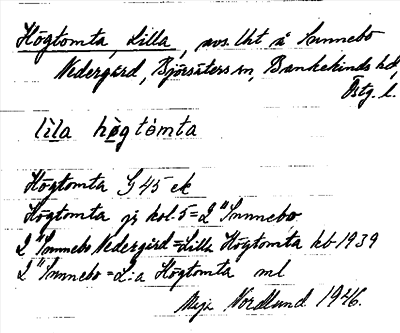 Högtomta, Lilla, avs. lht å Sunnebo
Nedergård, Björsäters sn, Bankekinds hd,
Östg. l.
lila högtomta
Högtomta G 45 ek
Högtomta js kol. 5 = 2 "Sunnebo
2 "Sunnebo Nedergård = Lilla Högtomta kb 1939
2 "Sunnebo = L:a Högtomta ml
Maja Nordlund 1946.